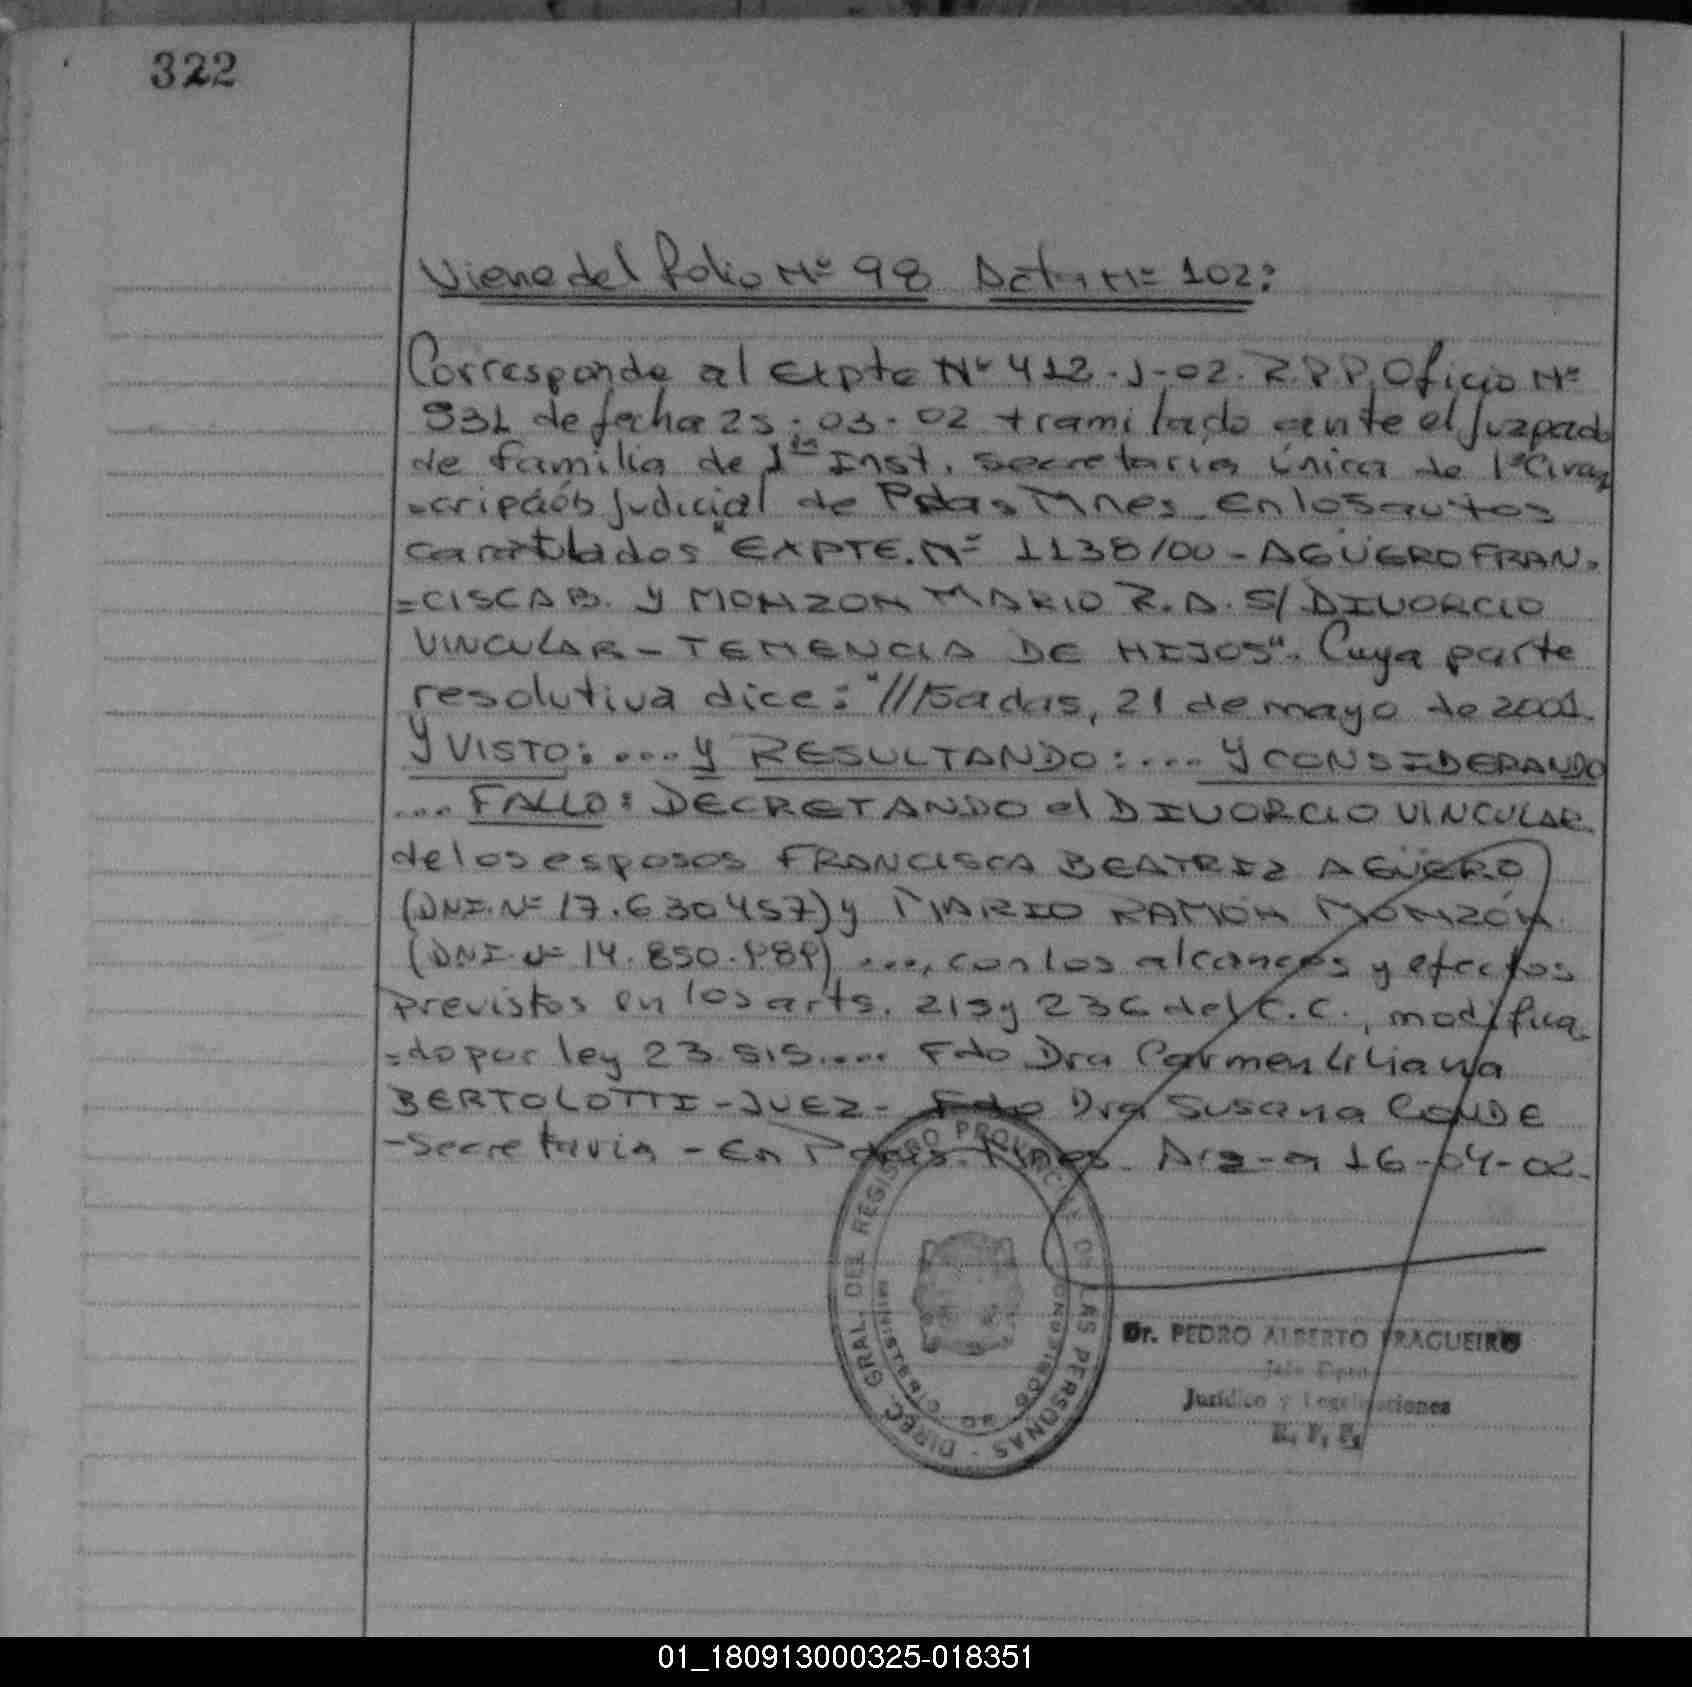 322
Viene del folio Nº 98 Acta Nº 102:
Corresponde al Expte Nº 412-J-02. R.P.P. Oficio Nº
931 de fecha 25-03-02 tramitado ante el Juzgado
de familia de 1ra Inst. secretaria única de 1ª Circuns
=cripción Judicial de Pdas Mnes. En los autos
caratulados "EXPTE. Nº 1138/00 - AGÜERO FRAN=
=CISCA B. Y MONZON MARIO R.A. S/ DIVORCIO
VINCULAR - TENENCIA DE HIJOS". Cuya parte
resolutiva dice: "///sadas, 21 de mayo de 2001.
Y VISTO: .... Y RESULTANDO: .... Y CONSIDERANDO
.... FALLO: DECRETANDO el DIVORCIO VINCULAR
de los esposos FRANCISCA BEATRIZ AGÜERO
(DNI. Nº 17.630457) y MARIO RAMÓN MONZÓN
(DNI. Nº 14.850. ) ...., con los alcances y efectos
previstos en los arts. 215 y 236 del C.C., modifica
=do por ley 23.515.... Fdo Dra Carmen Liliana
BERTOLOTTI - JUEZ - Fdo Dra Susana CONDE
- Secretaria - En Pdas. Mnes. Arg-a 16-04-02.
DIREC. GRAL. DEL REGISTRO PROVINCIAL DE LAS PERSONAS
Dr. PEDRO ALBERTO FRAGUEIRO
Jefe Dpto
Jurídico y Legalizaciones
R. P. P.
01_180913000325-018351